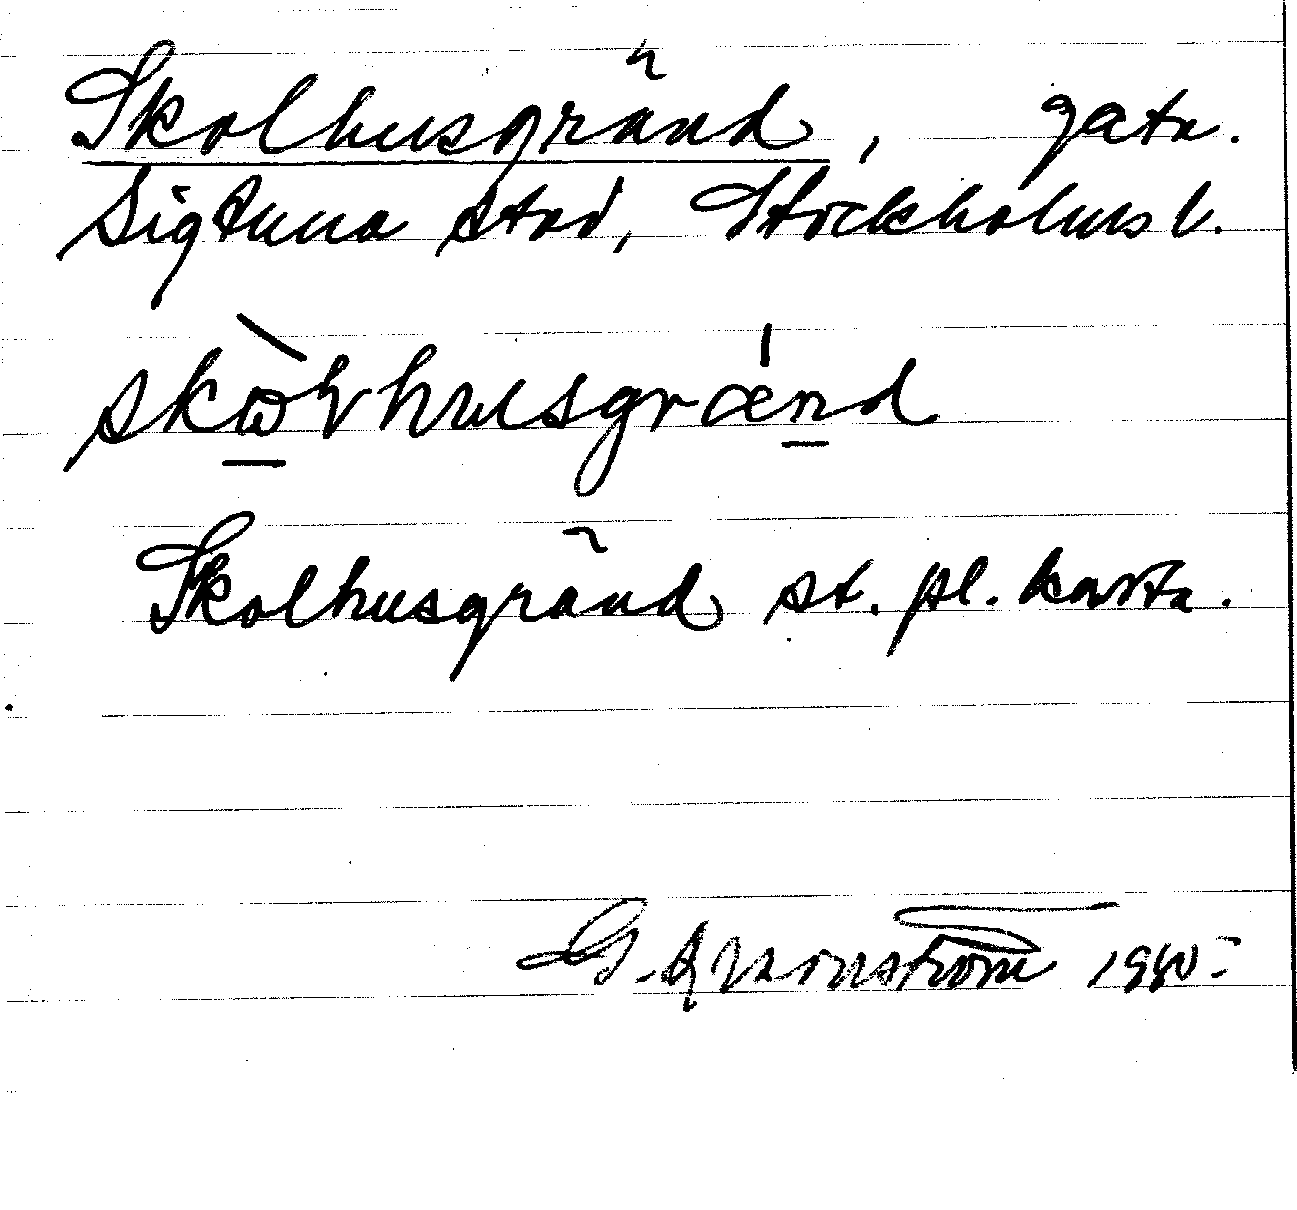 Skolhusgränd, gata.
Sigtuna stad, Stockholms l.
skωlhusgrænd
Skolhusgränd st. pl. karta.
G. 1940.